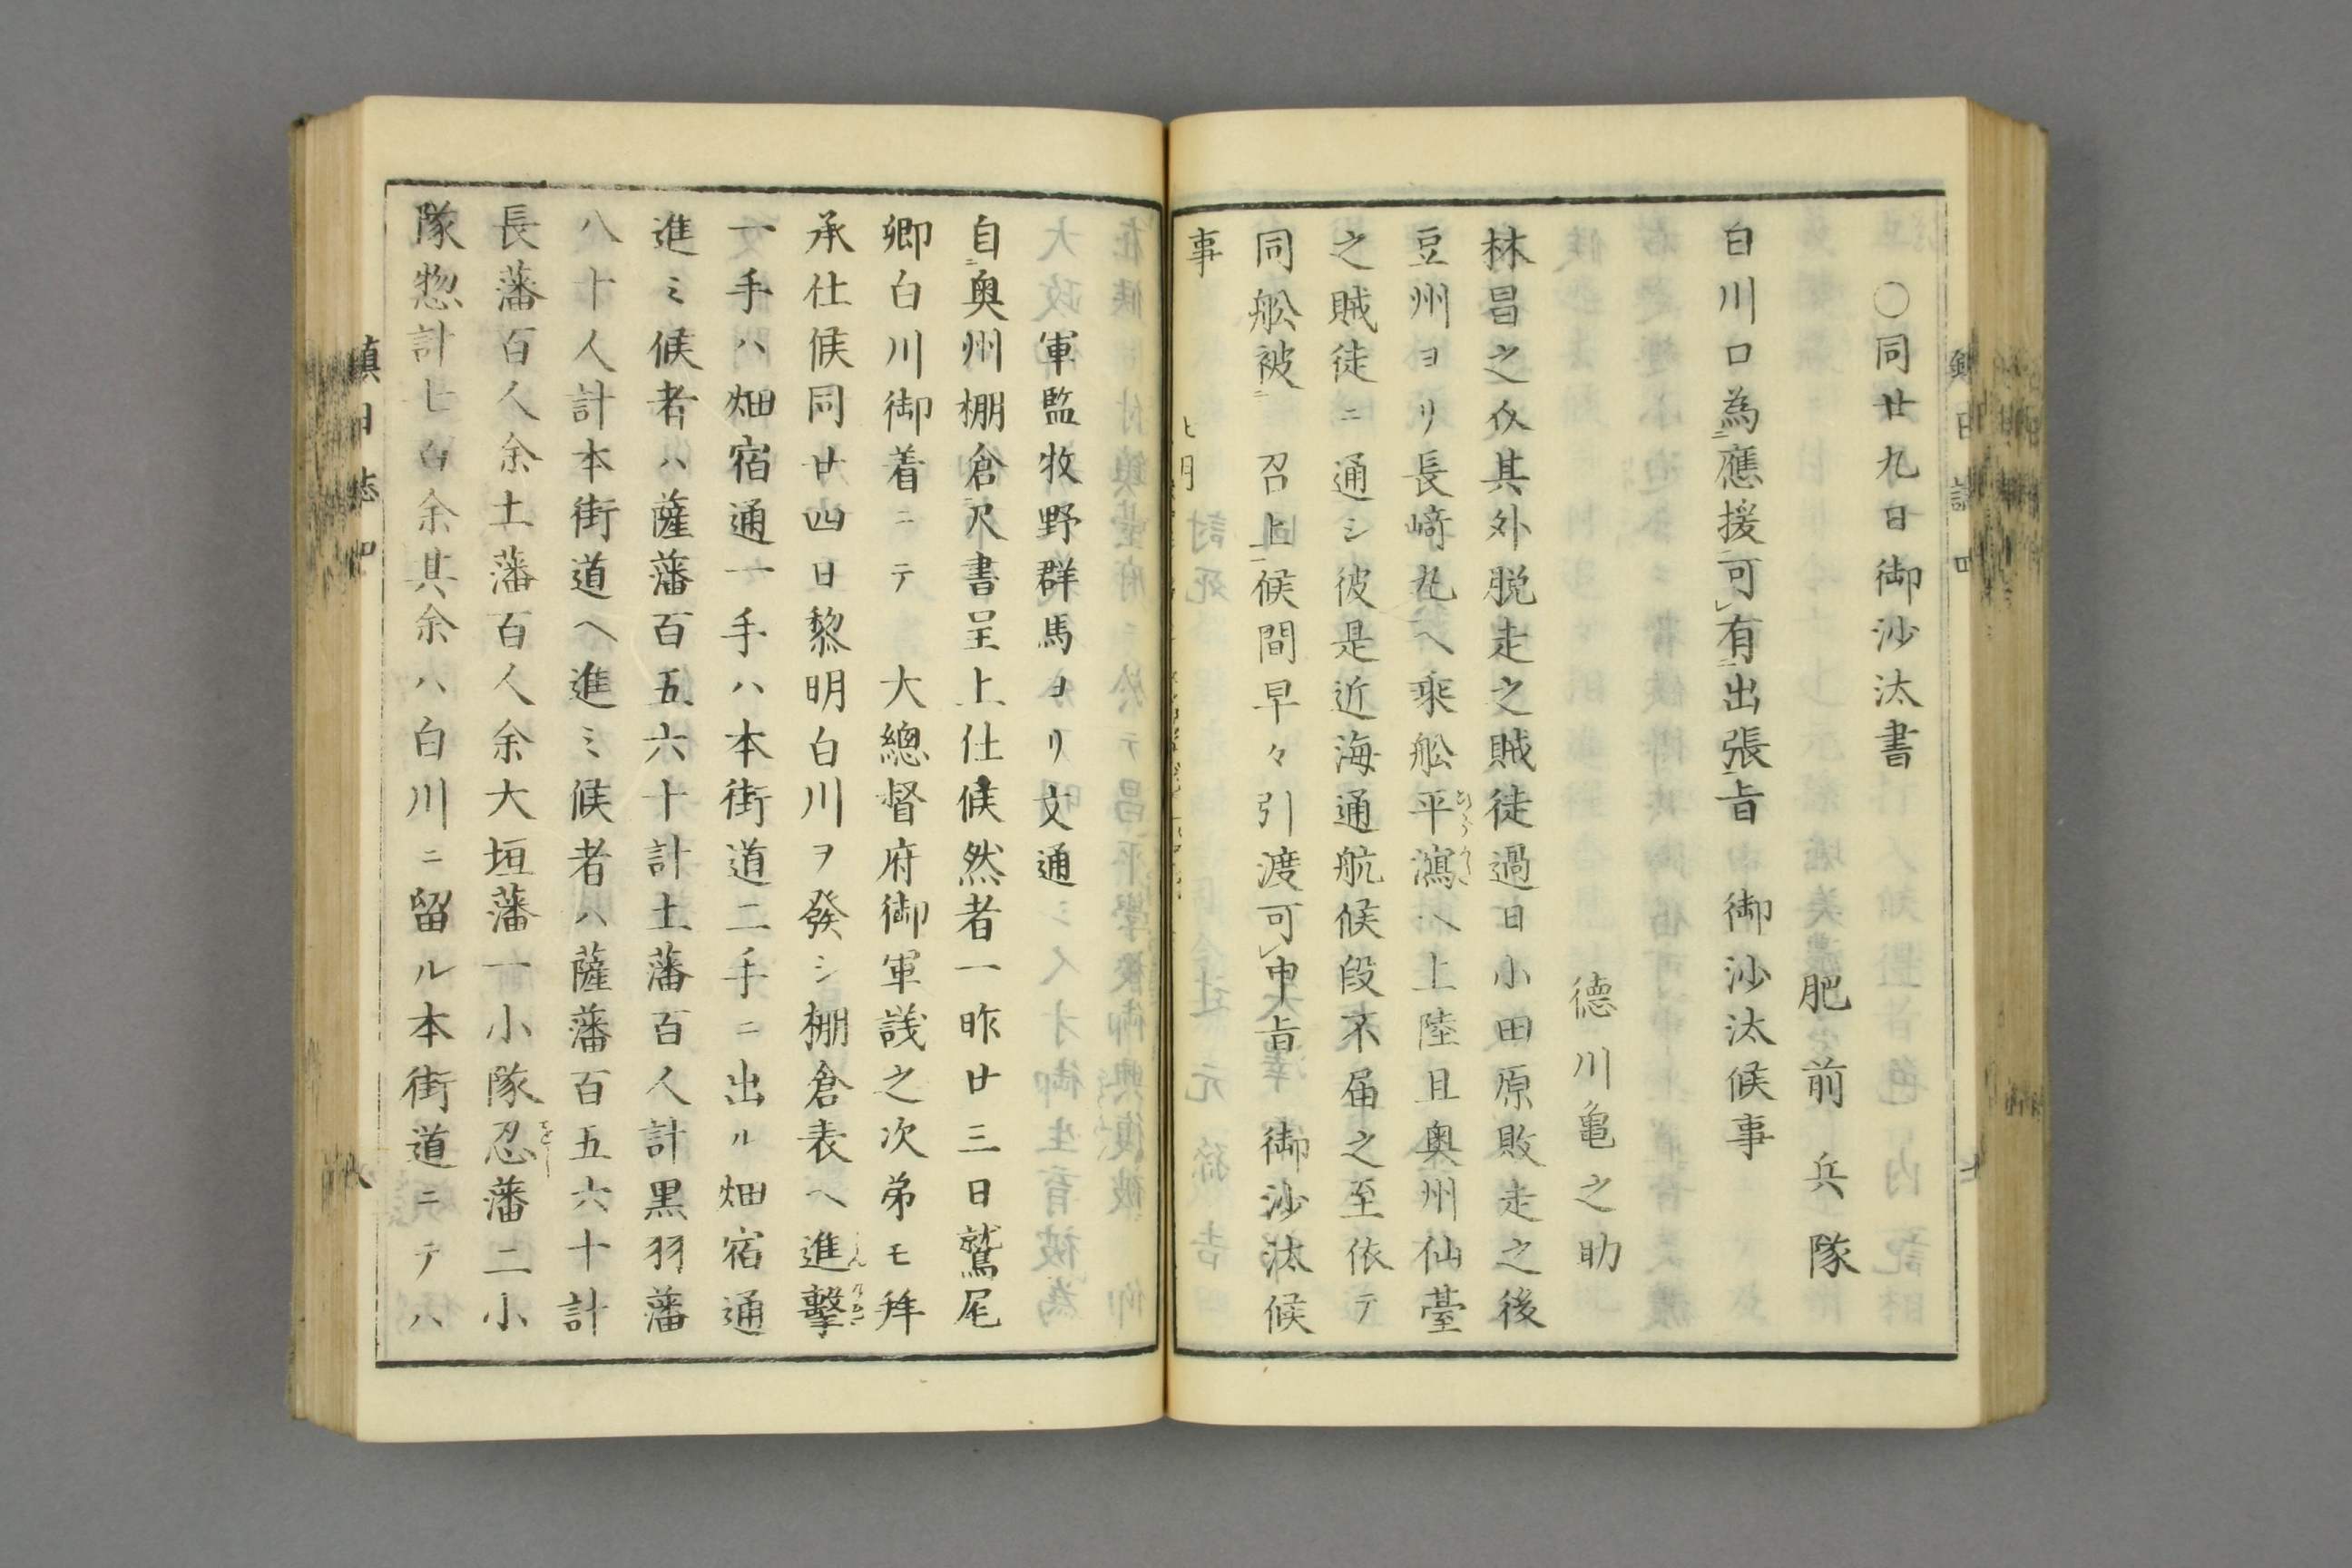 〇同廿九日御沙汰書
肥前兵隊
白川口為應援可有出張旨 御沙汰候事
德川亀之助
林昌之丞其外脱走之賊徒過日小田原敗走之後
豆州ヨリ長﨑丸ヘ乘舩平潟ヘ上陸且奥州仙臺
之賊徒ニ通シ彼是近海通航候段不届之至依テ
同舩被 召上候間早々引渡可申旨 御沙汰候
事
七月
軍監牧野群馬ヨリ文通
自奥州棚倉尺書呈上仕候然者一昨廿三日鷲尾
卿白川御着ニテ 大總督府御軍議之次第モ拜
承仕候同廿四日黎明白川ヲ發シ棚倉表ヘ進擊
一手ハ畑宿通一手ハ本街道二手ニ出ル畑宿通
進ミ候者ハ薩藩百五六十計土藩百人計黒羽藩
八十人計本街道ヘ進ミ候者ハ薩藩百五六十計
長藩百人余土藩百人余大垣藩一小隊忍藩二小
隊惣計七百余其余ハ白川ニ留ル本街道ニテハ
鎮日志四
八